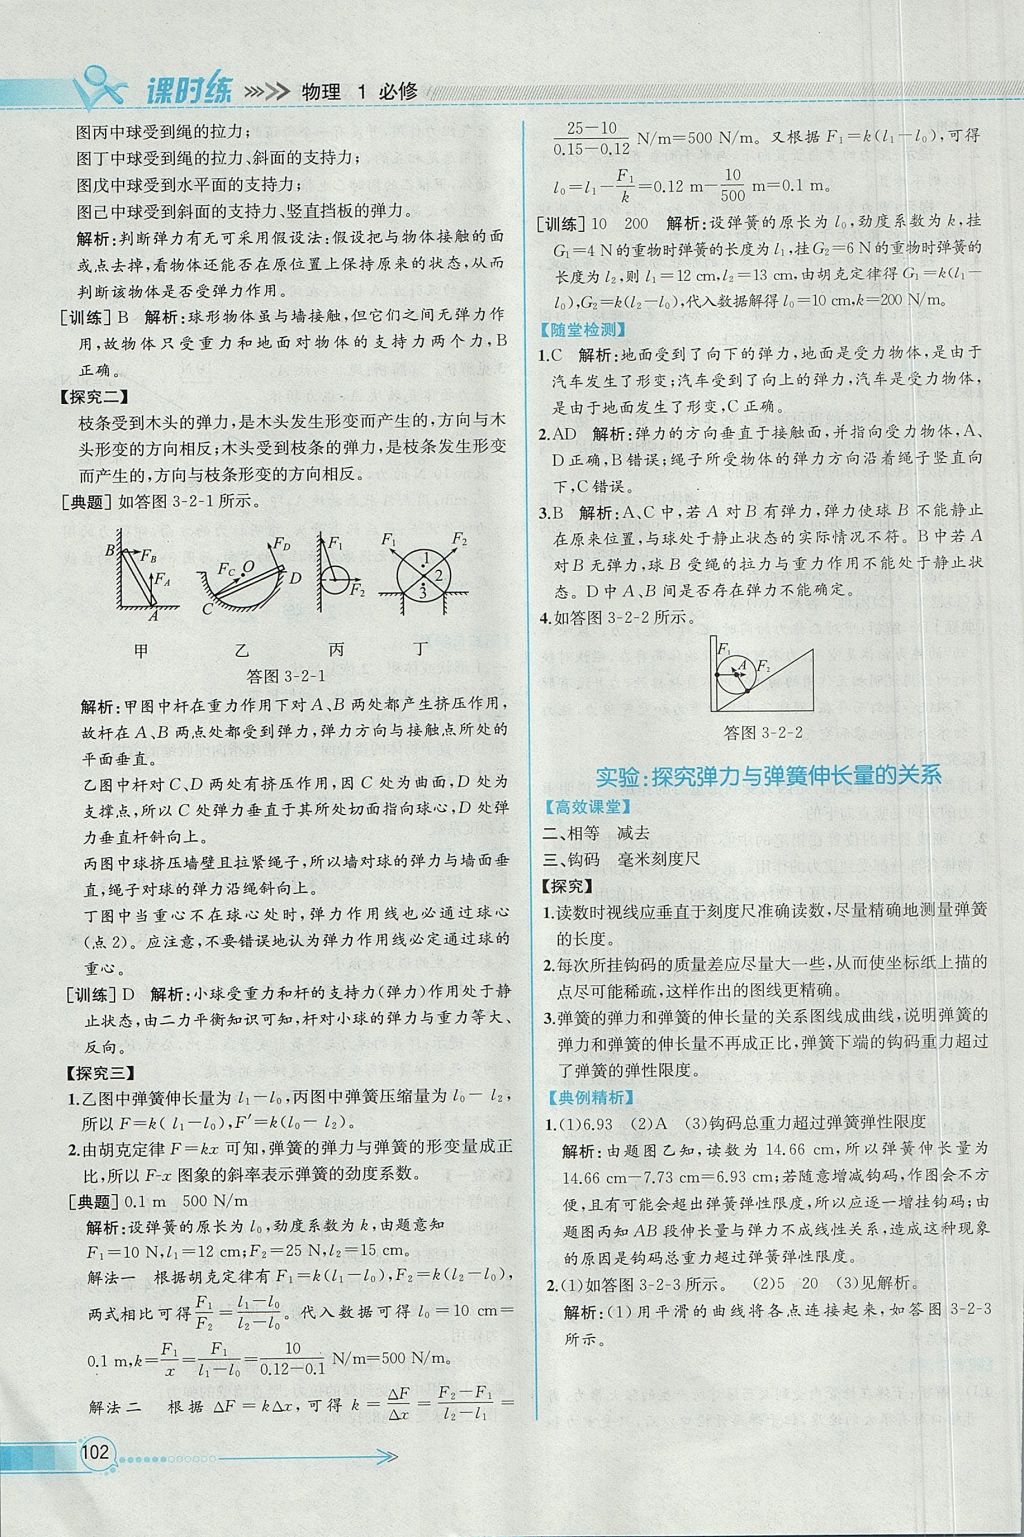 课时练 物理 1 必修
图丙中球受到绳的拉力;
图丁中球受到绳的拉力、斜面的支持力;
图戊中球受到水平面的支持力;
图己中球受到斜面的支持力、竖直挡板的弹力。
解析:判断弹力有无可采用假设法:假设把与物体接触的面
或点去掉,看物体还能否在原位置上保持原来的状态,从而
判断该物体是否受弹力作用。
[训练] B 解析:球形物体虽与墙接触,但它们之间无弹力作
用,故物体只受重力和地面对物体的支持力两个力,B
正确。
【探究二】
枝条受到木头的弹力,是木头发生形变而产生的,方向与木
头形变的方向相反;木头受到枝条的弹力,是枝条发生形变
而产生的,方向与枝条形变的方向相反。
[典题] 如答图 3-2-1 所示。
B F_B F_A A
F_D F_C O D C
F_1 F_2
F_1 F_2 1 2 3
甲 乙 丙 丁
答图 3-2-1
解析:甲图中杆在重力作用下对 A、B 两处都产生挤压作用,
故杆在 A、B 两点处都受到弹力,弹力方向与接触点所处的
平面垂直。
乙图中杆对 C、D 两处有挤压作用,因 C 处为曲面,D 处为
支撑点,所以 C 处弹力垂直于其所处切面指向球心,D 处弹
力垂直杆斜向上。
丙图中球挤压墙壁且拉紧绳子,所以墙对球的弹力与墙面垂
直,绳子对球的弹力沿绳斜向上。
丁图中当重心不在球心处时,弹力作用线也必通过球心
(点 2)。应注意,不要错误地认为弹力作用线必定通过球的
重心。
[训练] D 解析:小球受重力和杆的支持力(弹力)作用处于静
止状态,由二力平衡知识可知,杆对小球的弹力与重力等大、
反向。
【探究三】
1.乙图中弹簧伸长量为 l₁-l₀,丙图中弹簧压缩量为 l₀-l₂,
所以 F=k(l₁-l₀),F′=k(l₀-l₂)。
2.由胡克定律 F=kx 可知,弹簧的弹力与弹簧的形变量成正
比,所以 F-x 图象的斜率表示弹簧的劲度系数。
[典题] 0.1 m 500 N/m
解析:设弹簧的原长为 l₀,劲度系数为 k,由题意知
F₁=10 N,l₁=12 cm;F₂=25 N,l₂=15 cm。
解法一 根据胡克定律有 F₁=k(l₁-l₀),F₂=k(l₂-l₀),
两式相比可得 F₁/F₂=(l₁-l₀)/(l₂-l₀)。代入数据可得 l₀=10 cm=
0.1 m,k=F₁/x=F₁/(l₁-l₀)=10/(0.12-0.1) N/m=500 N/m。
解法二 根据 ΔF=kΔx,可得 k=ΔF/Δx=(F₂-F₁)/(l₂-l₁)=
102
(25-10)/(0.15-0.12) N/m=500 N/m。又根据 F₁=k(l₁-l₀),可得
l₀=l₁-F₁/k=0.12 m-10/500 m=0.1 m。
[训练] 10 200 解析:设弹簧的原长为 l₀,劲度系数为 k,挂
G₁=4 N 的重物时弹簧的长度为 l₁,挂 G₂=6 N 的重物时弹簧的
长度为 l₂,则 l₁=12 cm,l₂=13 cm,由胡克定律得 G₁=k(l₁-
l₀),G₂=k(l₂-l₀),代入数据解得 l₀=10 cm,k=200 N/m。
【随堂检测】
1.C 解析:地面受到了向下的弹力,地面是受力物体,是由于
汽车发生了形变;汽车受到了向上的弹力,汽车是受力物体,
是由于地面发生了形变,C 正确。
2.AD 解析:弹力的方向垂直于接触面,并指向受力物体,A、
D 正确,B 错误;绳子所受物体的弹力方向沿着绳子竖直向
下,C 错误。
3.B 解析:A、C 中,若 A 对 B 有弹力,弹力使球 B 不能静止
在原来位置,与球处于静止状态的实际情况不符。B 中若 A
对 B 无弹力,球 B 受绳的拉力与重力作用不能处于静止状
态。D 中 A、B 间是否存在弹力不能确定。
4.如答图 3-2-2 所示。
F_1 A F_2
答图 3-2-2
实验:探究弹力与弹簧伸长量的关系
【高效课堂】
二、相等 减去
三、钩码 毫米刻度尺
【探究】
1.读数时视线应垂直于刻度尺准确读数,尽量精确地测量弹簧
的长度。
2.每次所挂钩码的质量差应尽量大一些,从而使坐标纸上描的
点尽可能稀疏,这样作出的图线更精确。
3.弹簧的弹力和弹簧的伸长量的关系图线成曲线,说明弹簧的
弹力和弹簧的伸长量不再成正比,弹簧下端的钩码重力超过
了弹簧的弹性限度。
【典例精析】
1.(1)6.93 (2)A (3)钩码总重力超过弹簧弹性限度
解析:由题图乙知,读数为 14.66 cm,所以弹簧伸长量为
14.66 cm-7.73 cm=6.93 cm;若随意增减钩码,作图会不方
便,且有可能会超出弹簧弹性限度,所以应逐一增挂钩码;由
题图丙知 AB 段伸长量与弹力不成线性关系,造成这种现象
的原因是钩码总重力超过弹簧弹性限度。
2.(1)如答图 3-2-3 所示。 (2)5 20 (3)见解析。
解析:(1)用平滑的曲线将各点连接起来,如答图 3-2-3
所示。